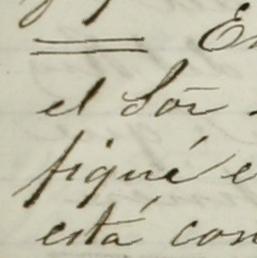 el Sōr
fiqué e
está con